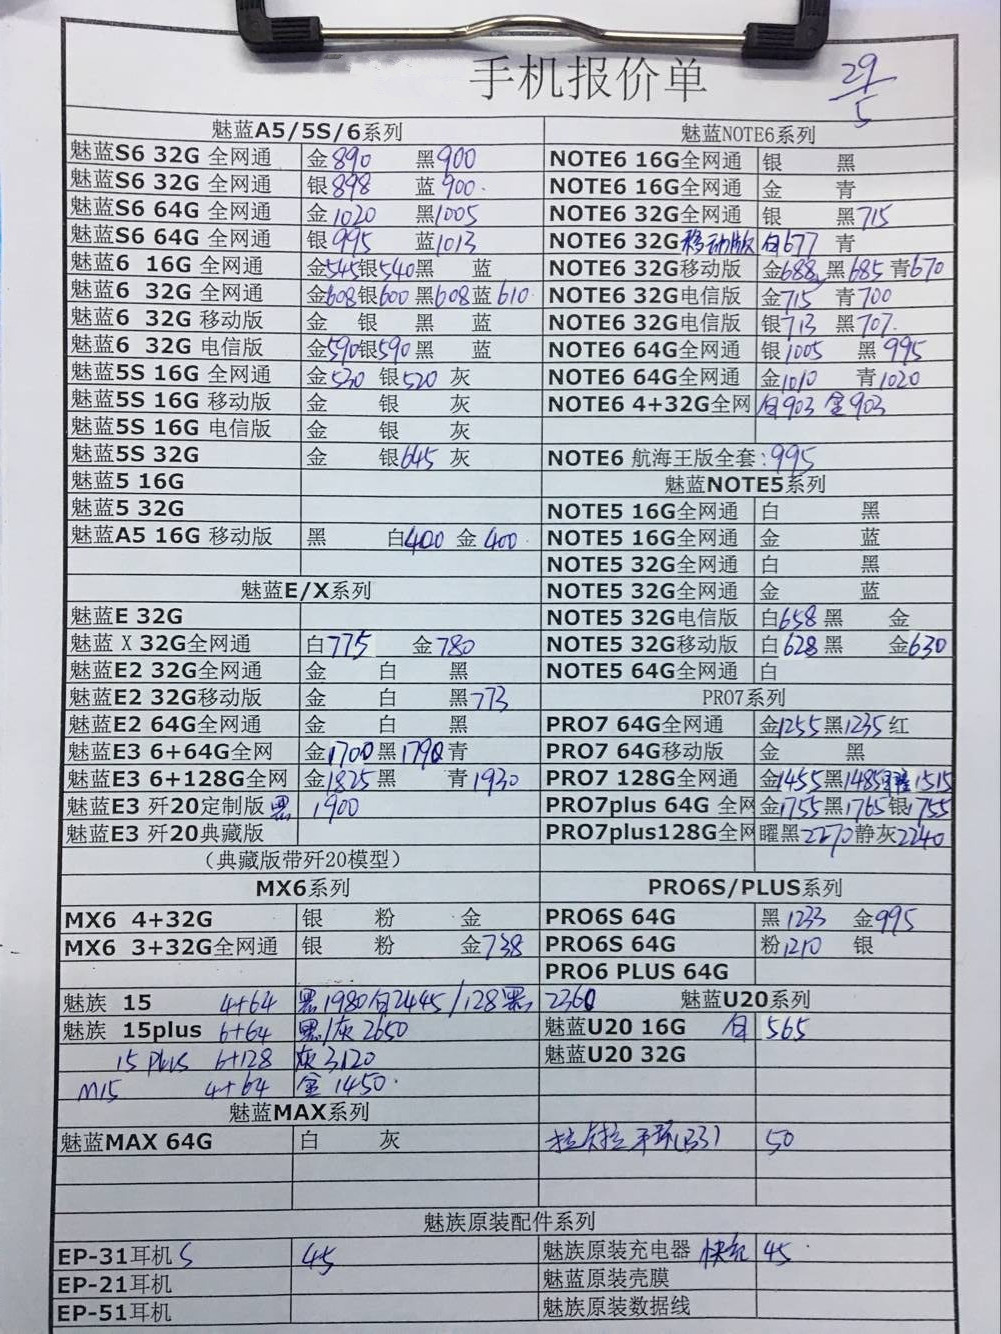 手机报价单
29/5
魅蓝A5/5S/6系列
魅蓝S6 32G 全网通 金890 黑900
魅蓝S6 32G 全网通 银898 蓝900
魅蓝S6 64G 全网通 金1020 黑1005
魅蓝S6 64G 全网通 银995 蓝1013
魅蓝6 16G 全网通 金545银540黑 蓝
魅蓝6 32G 全网通 金608银600 黑608蓝610
魅蓝6 32G 移动版 金 银 黑 蓝
魅蓝6 32G 电信版 金590银590黑 蓝
魅蓝5S 16G 全网通 金520 银520 灰
魅蓝5S 16G 移动版 金 银 灰
魅蓝5S 16G 电信版 金 银 灰
魅蓝5S 32G 金 银645 灰
魅蓝5 16G
魅蓝5 32G
魅蓝A5 16G 移动版 黑 白400 金400
魅蓝E/X系列
魅蓝E 32G
魅蓝 X 32G全网通 白775 金780
魅蓝E2 32G全网通 金 白 黑
魅蓝E2 32G移动版 金 白 黑773
魅蓝E2 64G全网通 金 白 黑
魅蓝E3 6+64G全网 金1700黑1790青
魅蓝E3 6+128G全网 金1825黑 青1930
魅蓝E3 歼20定制版 黑 1900
魅蓝E3 歼20典藏版
（典藏版带歼20模型）
MX6系列
MX6 4+32G 银 粉 金
MX6 3+32G全网通 银 粉 金738
魅族 15 4+64 黑1980白2445/128黑 2360
魅族 15plus 6+64 黑/灰2650
15 plus 6+128 灰3120
M15 4+64 金1450
魅蓝MAX系列
魅蓝MAX 64G 白 灰
魅蓝NOTE6系列
NOTE6 16G全网通 银 黑
NOTE6 16G全网通 金 青
NOTE6 32G全网通 银 黑715
NOTE6 32G移动版 白677 青
NOTE6 32G移动版 金688 黑685 青670
NOTE6 32G电信版 金715 青700
NOTE6 32G电信版 银713 黑707
NOTE6 64G全网通 银1005 黑995
NOTE6 64G全网通 金1010 青1020
NOTE6 4+32G全网 白903 金903
NOTE6 航海王版全套:995
魅蓝NOTE5系列
NOTE5 16G全网通 白 黑
NOTE5 16G全网通 金 蓝
NOTE5 32G全网通 白 黑
NOTE5 32G全网通 金 蓝
NOTE5 32G电信版 白658 黑 金
NOTE5 32G移动版 白628 黑 金630
NOTE5 64G全网通 白
PRO7系列
PRO7 64G全网通 金1255黑1235红
PRO7 64G移动版 金 黑
PRO7 128G全网通 金1455黑1485 1515
PRO7plus 64G 全网 金1755黑1765银1755
PRO7plus128G全网 曜黑2270静灰2240
PRO6S/PLUS系列
PRO6S 64G 黑1233 金995
PRO6S 64G 粉1210 银
PRO6 PLUS 64G
魅蓝U20系列
魅蓝U20 16G 白 565
魅蓝U20 32G
拉卡拉手环(B3) 50
魅族原装配件系列
EP-31耳机 S 45
EP-21耳机
EP-51耳机
魅族原装充电器 快充 45
魅蓝原装壳膜
魅族原装数据线